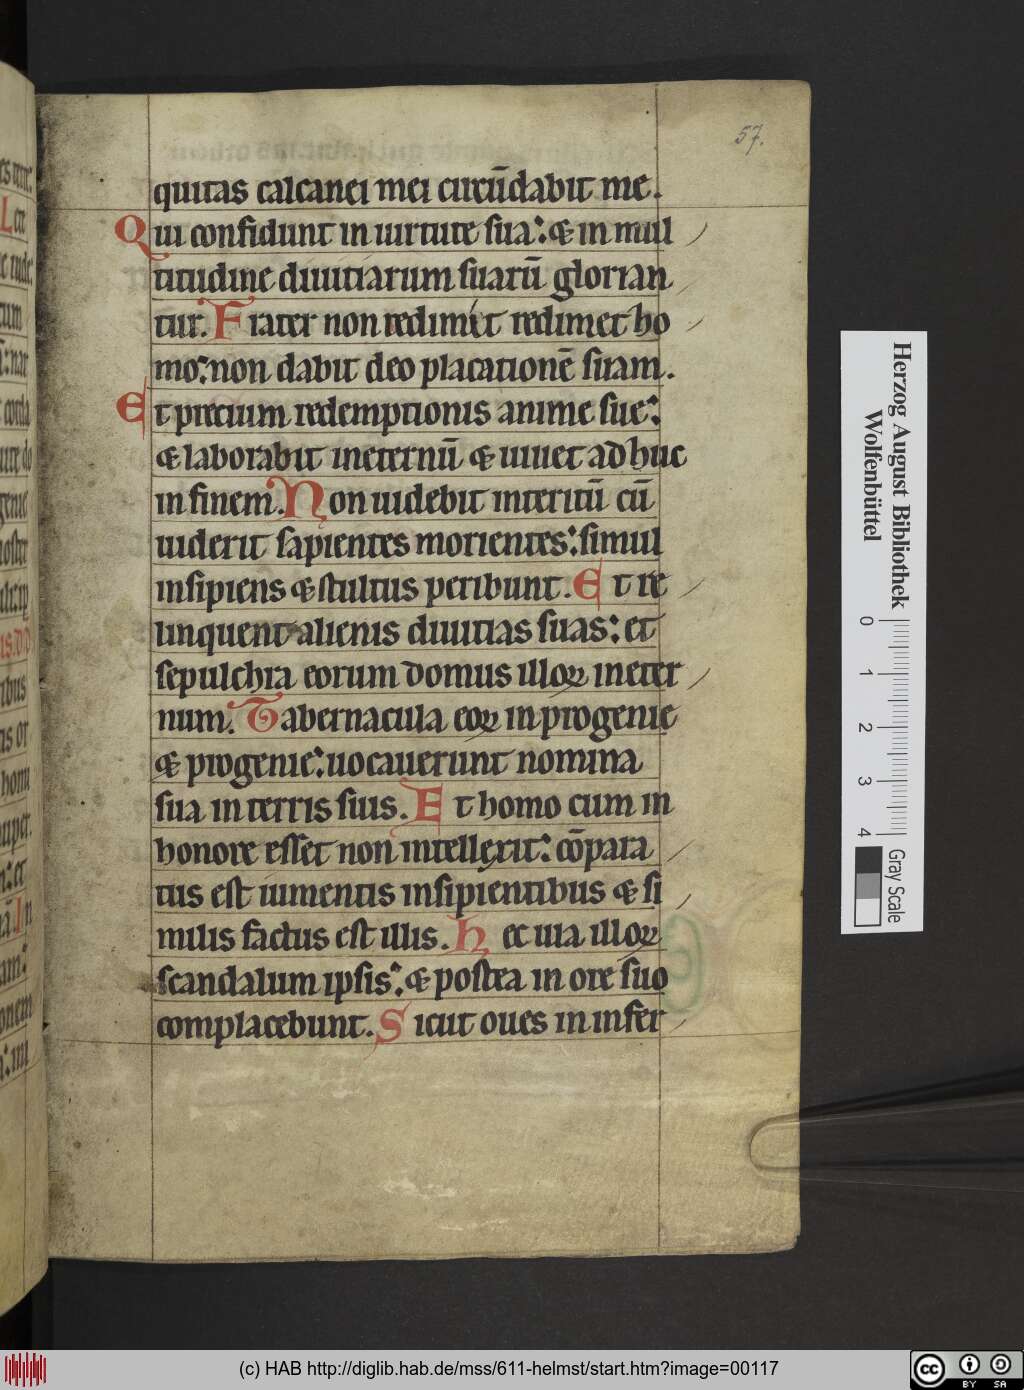 57.
quitas calcanei mei circūdabit me.
Qui confidunt in uirtute sua: & in mul
titudine diuitiarum suarū glorian
tur. Frater non redimit redimet ho
mo: non dabit deo placationē suam.
Et precium redemptionis anime sue:
& laborabit ineternū & uiuet adhuc
in finem. Non uidebit interitū cū
uiderit sapientes morientes: simul
insipiens & stultus peribunt. Et re
linquent alienis diuitias suas: et
sepulchra eorum domus illoꝝ ineter
num. Tabernacula eoꝝ in progenie
& progenie: uocauerunt nomina
sua in terris suis. Et homo cum in
honore esset non intellexit: cōpara
tus est iumentis insipientibus & si
milis factus est illis. Hec uia illoꝝ
scandalum ipsis: & postea in ore suo
complacebunt. Sicut oues in infer
Herzog August Bibliothek
Wolfenbüttel
0 1 2 3 4
Gray Scale
(c) HAB http://diglib.hab.de/mss/611-helmst/start.htm?image=00117
cc BY SA